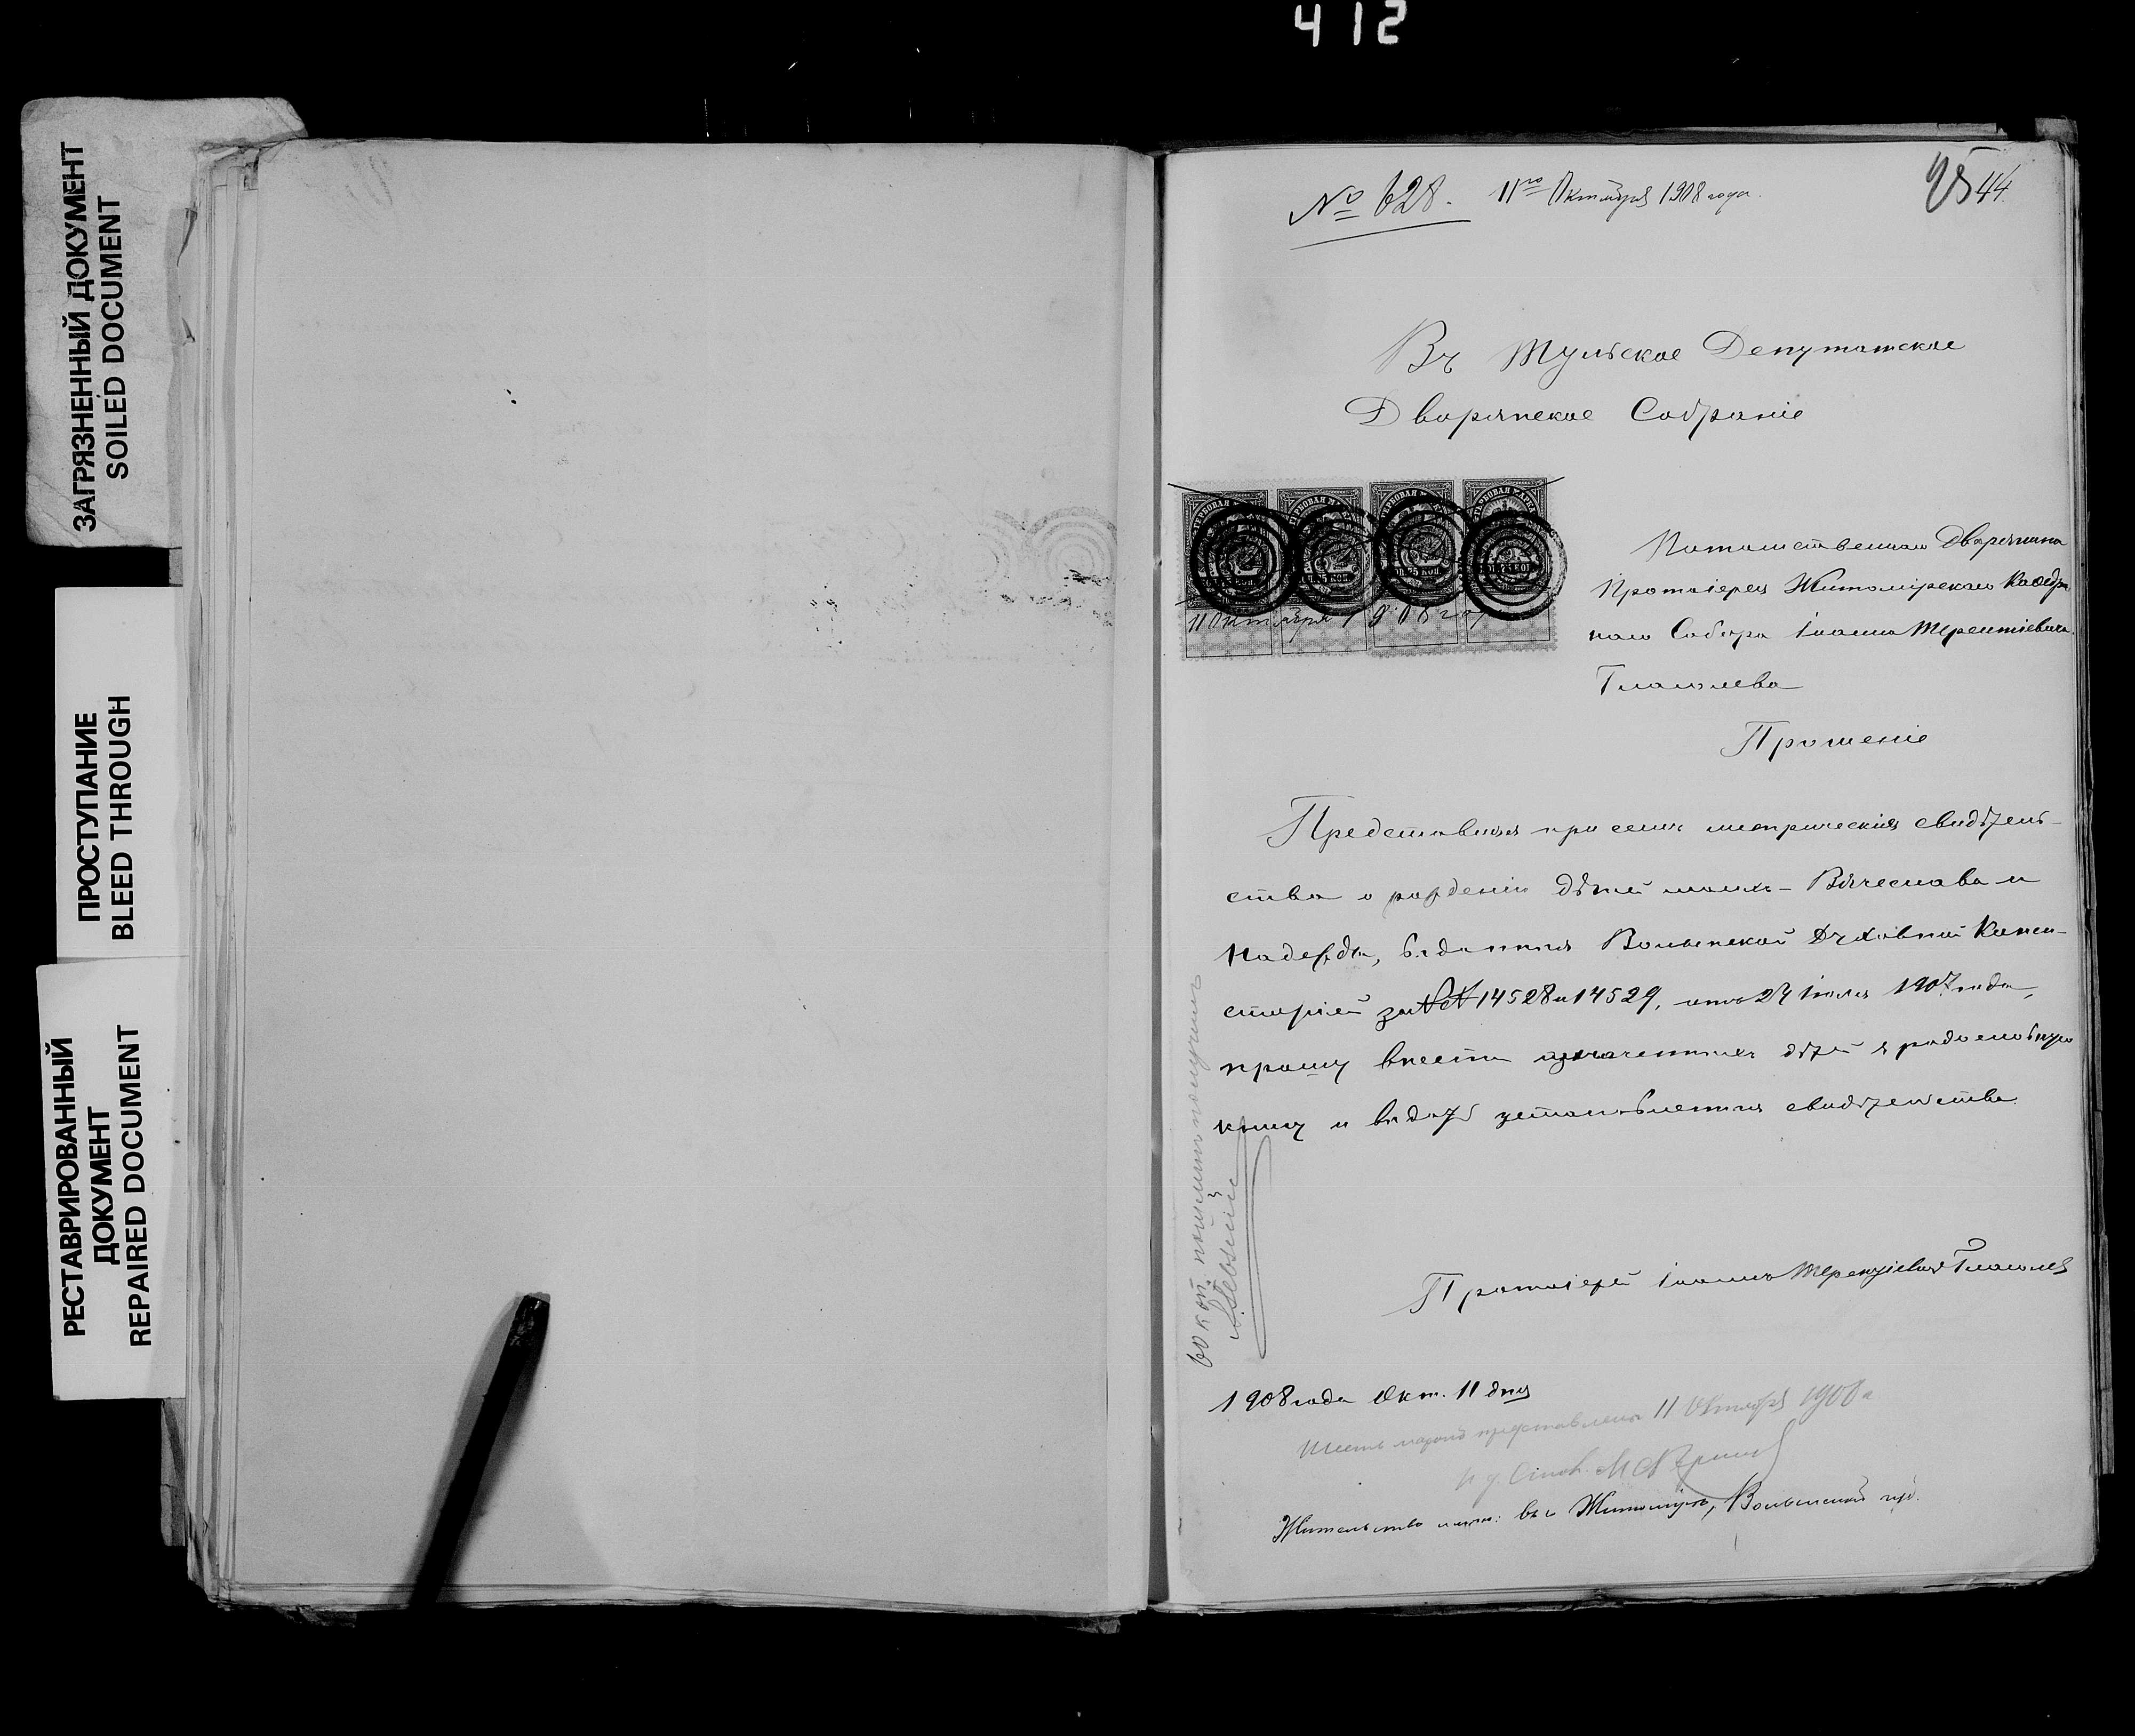 412
ЗАГРЯЗНЕННЫЙ ДОКУМЕНТ
SOILED DOCUMENT
ПРОСТУПАНИЕ
BLEED THROUGH
РЕСТАВРИРОВАННЫЙ
ДОКУМЕНТ
REPAIRED DOCUMENT
№ 628. 11го Октября 1908 года.
44
Въ Тульское Депутатское
Дворянское Собраніе
11 Октября 1908 года
Потомственнаго Дворянина
Протоіерея Житомірскаго Каѳедраль
наго Собора Іоанна Терентіевича
Глаголева
Прошеніе
Представляя при семъ метрическія свидѣтель-
ства о рожденіи дѣтей моихъ - Вячеслава и
Надежды, выданныя Волынской Духовной Консис-
торіей за №№ 14528 и 14529, отъ 24 Іюля 1907 года,
прошу внести означенныхъ дѣтей въ родословную
книгу и выдать установленныя свидѣтельства.
Протоіерей Іоаннъ Терентіевичъ Глаголевъ
60 коп. пошлинъ получилъ
1908 года Окт. 11 дня
Шесть марокъ представлены 11 Октября 1908 г.
Жительство имѣю: въ г. Житоміръ, Волынской губ.